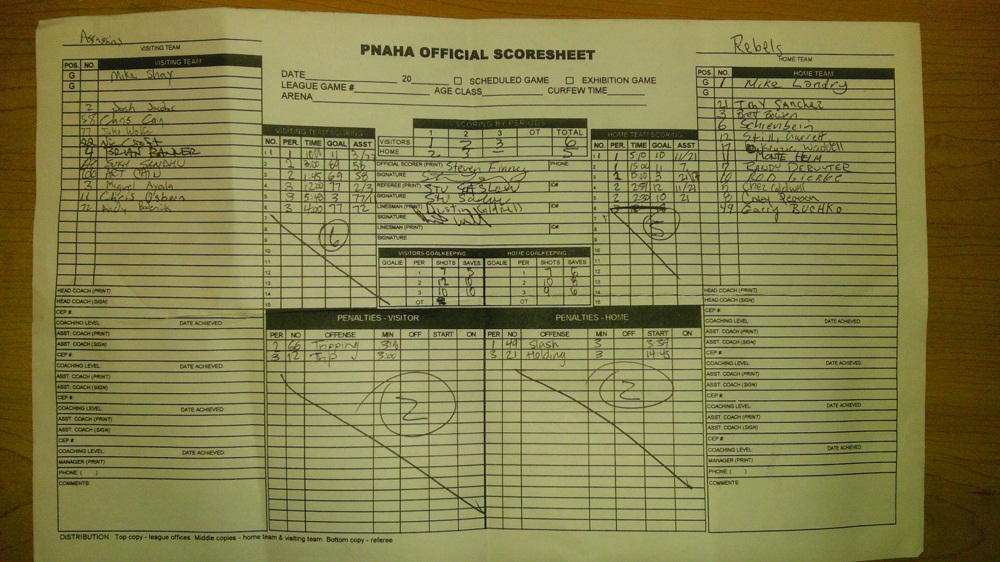 Assassins
VISITING TEAM
PNAHA OFFICIAL SCORESHEET
Rebels
HOME TEAM
DATE 20 SCHEDULED GAME EXHIBITION GAME
LEAGUE GAME # AGE CLASS CURFEW TIME
ARENA
POS. NO. VISITING TEAM
G Mike Shay
G
2 Josh
58 Chris Cain
77
22
4 BRIAN BANNER
SANDHU
100 ART CHIN
3 Miguel Ayala
11 Chris O'Shern
72 Andy
VISITING TEAM SCORING
NO. PER. TIME GOAL ASST
1 1 11
2 2 69 58
3 2 1:45 69 58
4 3 12:00 77 2/3
5 3 5:40 3 77/
6 3 4:00 77 72
7
8
9
10
11
12
13
14
15
6
SCORING BY PERIODS
1 2 3 OT TOTAL
VISITORS 1 2 3 6
HOME 2 3 5
OFFICIAL SCORER (PRINT) Steven Finney PHONE
SIGNATURE
REFEREE (PRINT) STU IC#
SIGNATURE
LINESMAN (PRINT) IC#
SIGNATURE
LINESMAN (PRINT) IC#
SIGNATURE
VISITORS GOALKEEPING HOME GOALKEEPING
GOALIE PER SHOTS SAVES GOALIE PER SHOTS SAVES
1 7 5 1 7 6
2 2 10 8
3 10 10 3 9 6
OT OT
HOME TEAM SCORING
NO. PER. TIME GOAL ASST
1 1 5:10 10 11/21
2 1 15:00 11 7
3 2 3
4 2 12 11/21
5 2 2:30 10 21
6
7
8
9
10
11
12
13
14
15
5
POS. NO. HOME TEAM
G 1 Mike Landry
G
21 Tony Sanchez
3 Brett Bowen
6 Schienbein
12 Garrett
17
MONTE HEIM
7 RANDY DERUYTER
10 ROD
5 Chez Caldwell
8
49 Garry BUCHKO
PENALTIES - VISITOR
PER NO OFFENSE MIN OFF START ON
2 66 Tripping
3 12 Trip 3:00
2
PENALTIES - HOME
PER NO. OFFENSE MIN OFF START ON
1 49 Slash 3 3:39
3 21 Holding 3 14:45
2
HEAD COACH (PRINT)
HEAD COACH (SIGN)
CEP #
COACHING LEVEL DATE ACHIEVED
ASST. COACH (PRINT)
ASST. COACH (SIGN)
CEP #
COACHING LEVEL DATE ACHIEVED
ASST. COACH (PRINT)
ASST. COACH (SIGN)
CEP #
COACHING LEVEL DATE ACHIEVED
ASST. COACH (PRINT)
ASST. COACH (SIGN)
CEP #
COACHING LEVEL DATE ACHIEVED
MANAGER (PRINT)
PHONE ( )
COMMENTS:
HEAD COACH (PRINT)
HEAD COACH (SIGN)
CEP #
COACHING LEVEL DATE ACHIEVED
ASST. COACH (PRINT)
ASST. COACH (SIGN)
CEP #
COACHING LEVEL DATE ACHIEVED
ASST. COACH (PRINT)
ASST. COACH (SIGN)
CEP #
COACHING LEVEL DATE ACHIEVED
ASST. COACH (PRINT)
ASST. COACH (SIGN)
CEP #
COACHING LEVEL DATE ACHIEVED
MANAGER (PRINT)
PHONE ( )
COMMENTS:
DISTRIBUTION Top copy - league offices. Middle copies - home team & visiting team. Bottom copy - referee